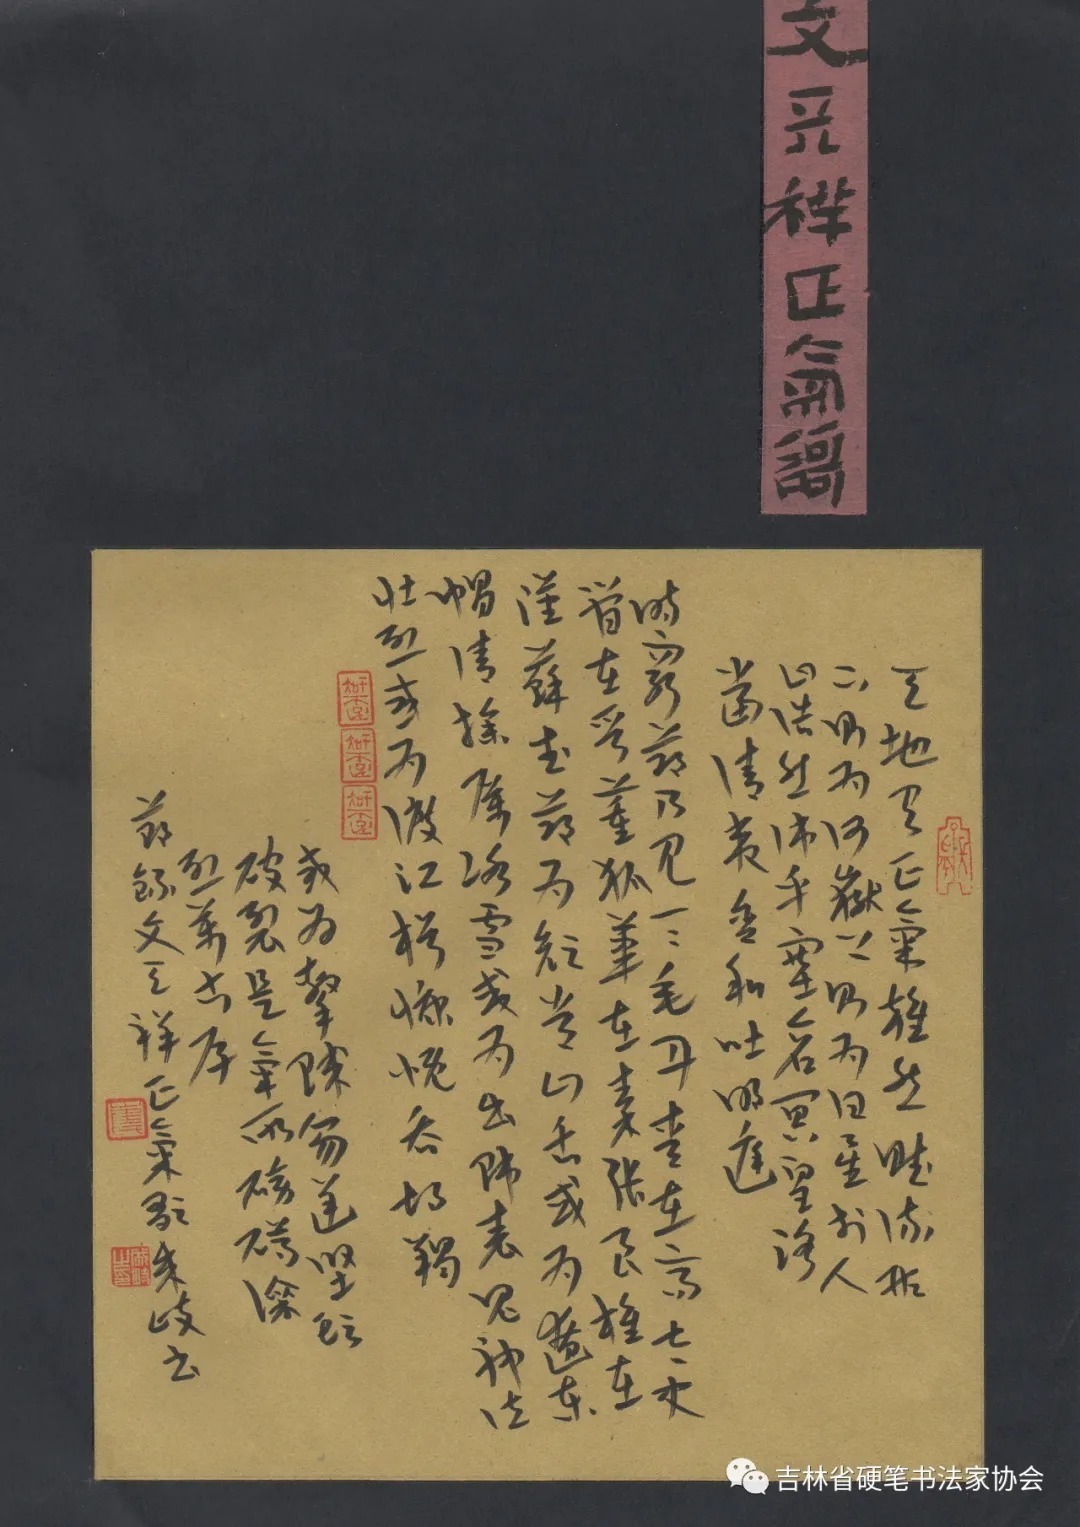 文天祥正氣謌
天地有正氣雜然賦流形
下則为河嶽上則为日星於人
曰浩然沛乎塞蒼冥皇路
當清夷含和吐明庭
時窮節乃見一一垂丹青在齊太史
簡在晉董狐筆在秦張良椎在
漢蘇武節为顏常山舌或为遼東
帽清操厲冰雪或为出師表鬼神泣
壯烈或为渡江楫慷慨吞胡羯
或为擊賊笏逆豎頭
破裂是氣所磅礴凜
烈萬古存
節錄文天祥正氣歌朱歧书
吉林省硬笔书法家协会